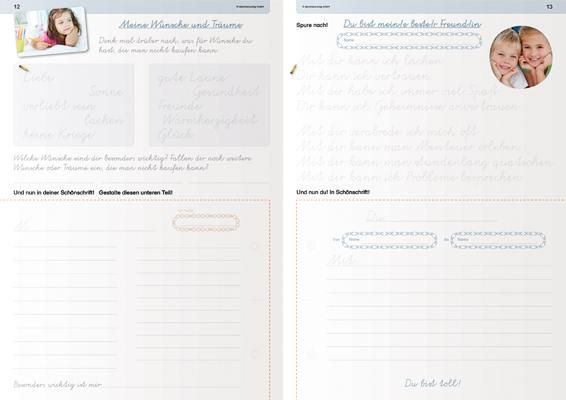 12
Meine Wünsche und Träume
Denk mal drüber nach, was für Wünsche du
hast, die man nicht kaufen kann.
Liebe
Sonne
verliebt sein
lachen
keine Kriege
gute Laune
Gesundheit
Freunde
Warmherzigkeit
Glück
Welche Wünsche sind dir besonders wichtig? Fallen dir noch weitere
Wünsche oder Träume ein, die man nicht kaufen kann?
Und nun in deiner Schönschrift! Gestalte diesen unteren Teil!
Besonders wichtig ist mir
13
Spure nach!
Du bist mein/e beste/r Freund/in
Name
Mit dir kann ich lachen.
Dir kann ich vertrauen.
Mit dir habe ich immer viel Spaß.
Dir kann ich Geheimnisse anvertrauen.
Mit dir verabrede ich mich oft.
Mit dir kann man Abenteuer erleben.
Mit dir kann man stundenlang quatschen.
Mit dir kann ich Probleme besprechen.
Und nun du! In Schönschrift!
Du
Von
Name
an
Name
Mit
Du bist toll!